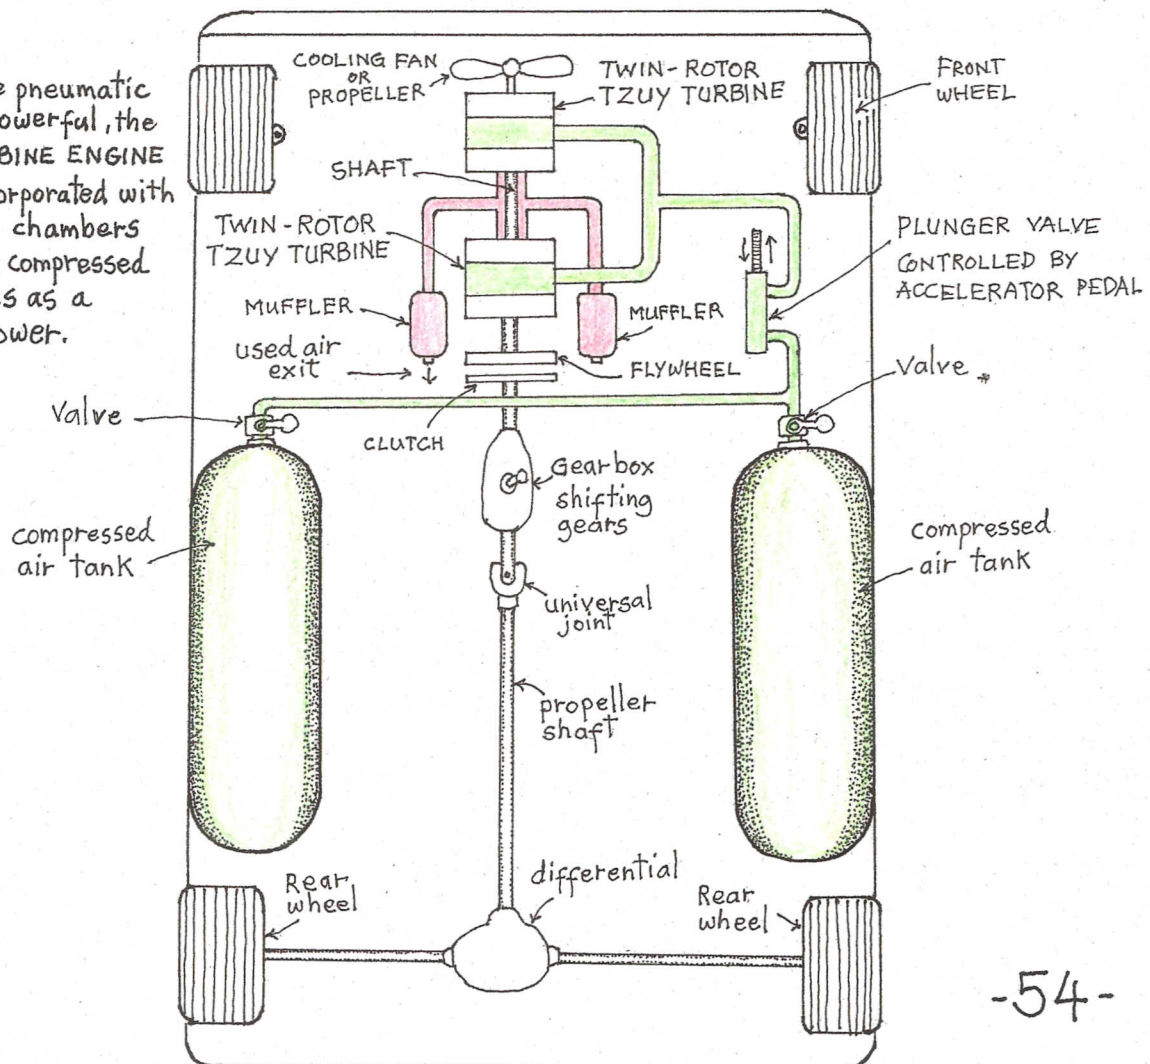 pneumatic
powerful, the
BINE ENGINE
orporated with
chambers
compressed
s as a
ower.
COOLING FAN
OR
PROPELLER
TWIN-ROTOR
TZUY TURBINE
FRONT
WHEEL
SHAFT
TWIN-ROTOR
TZUY TURBINE
PLUNGER VALVE
CONTROLLED BY
ACCELERATOR PEDAL
MUFFLER
MUFFLER
used air
exit
FLYWHEEL
Valve
Valve
CLUTCH
Gearbox
shifting
gears
compressed
air tank
compressed
air tank
universal
joint
propeller
shaft
differential
Rear
wheel
Rear
wheel
-54-